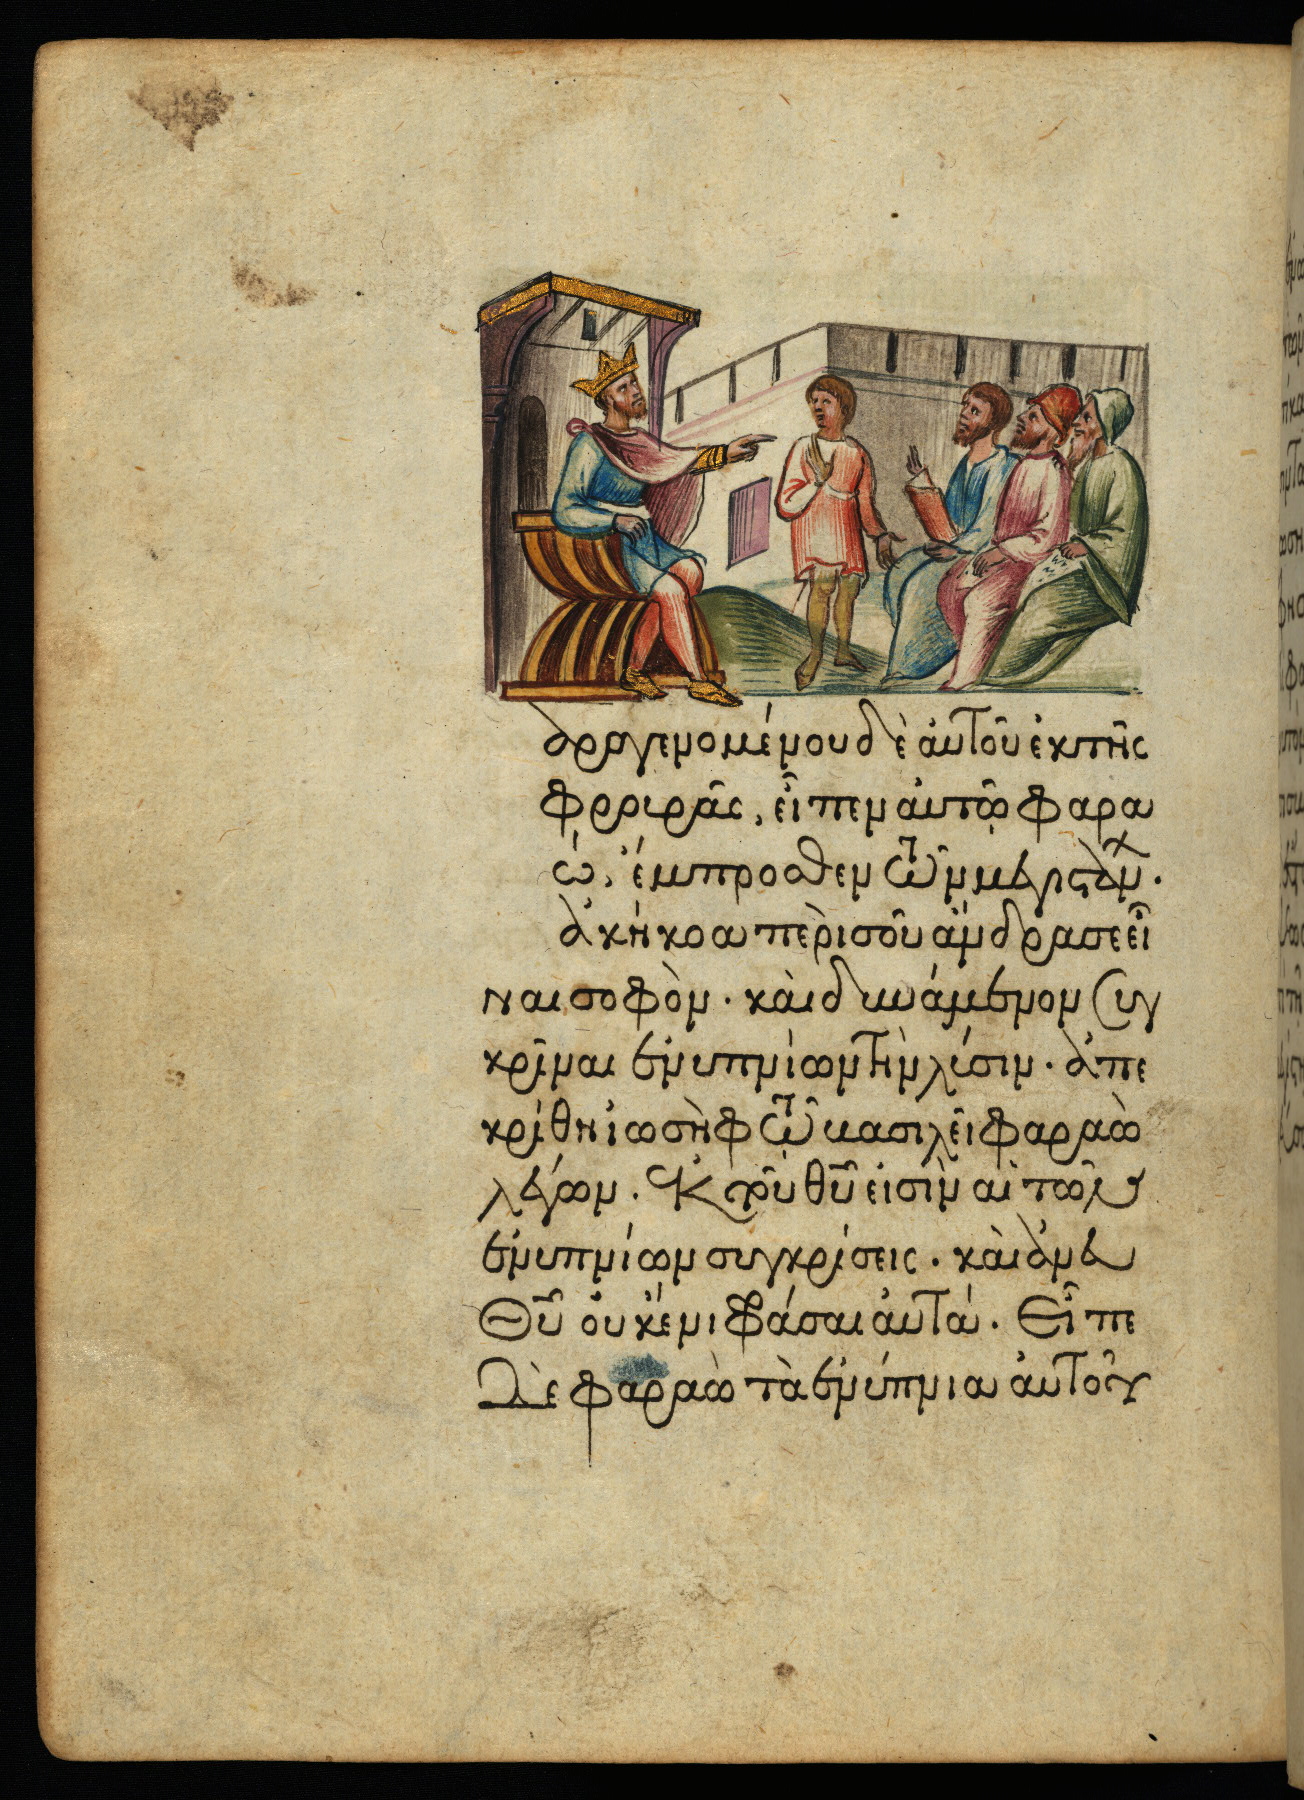 αραγενομένου δὲ αὐτοῦ ἐκ τῆς
φρουρᾶς, εἶπεν αὐτῷ φαρα
ώ, ἔμπροσθεν τῶν μεγιστάν.
ἀκήκοα περὶ σοῦ ἄνδρα σε εἶ
ναι σοφὸν· καὶ δυνάμενον συγ
κρῖναι ἐνυπνίων τὴν λύσιν· ἀπε
κρίθη ἰωσὴφ τῷ βασιλεῖ φαραὼ
λέγων· Ἐκ τοῦ θῦ εἰσὶν αἱ τῶν
ἐνυπνίων συγκρίσεις· καὶ ἄνευ
Θῦ οὐκ ἔνι φράσαι αὐτά· Εἶπε
Δὲ φαραὼ τὰ ἐνύπνια αὐτοῦ